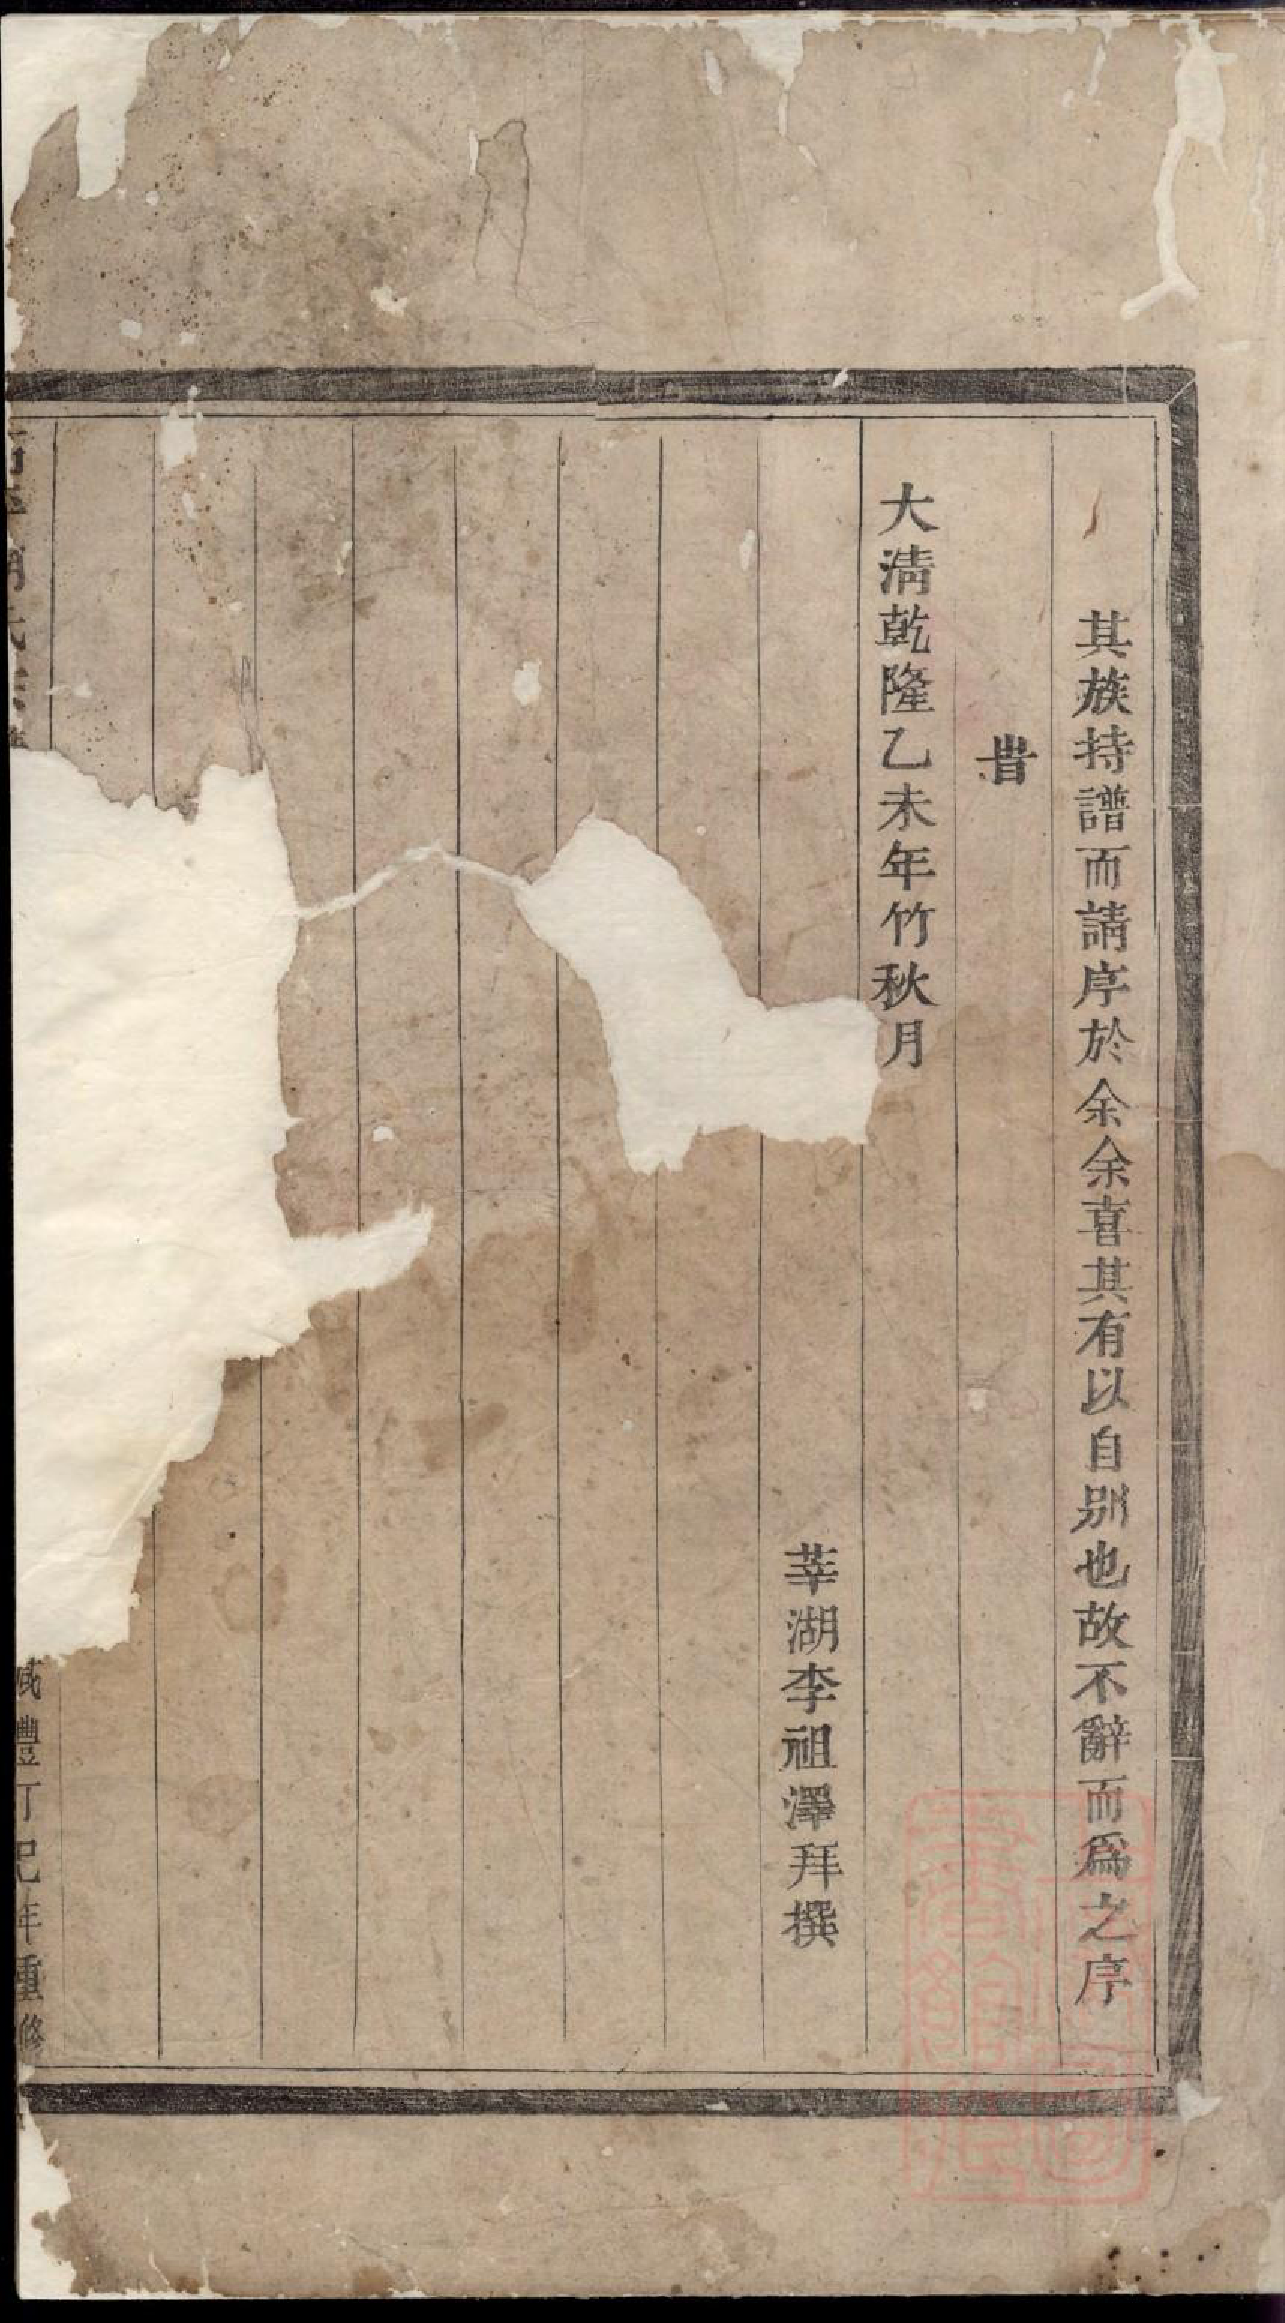 其族持譜而請序於余余喜其有以自别也故不辭而爲之序
旹
大清乾隆乙未年竹秋月
莘湖李祖澤拜撰
咸豐丁巳年重修